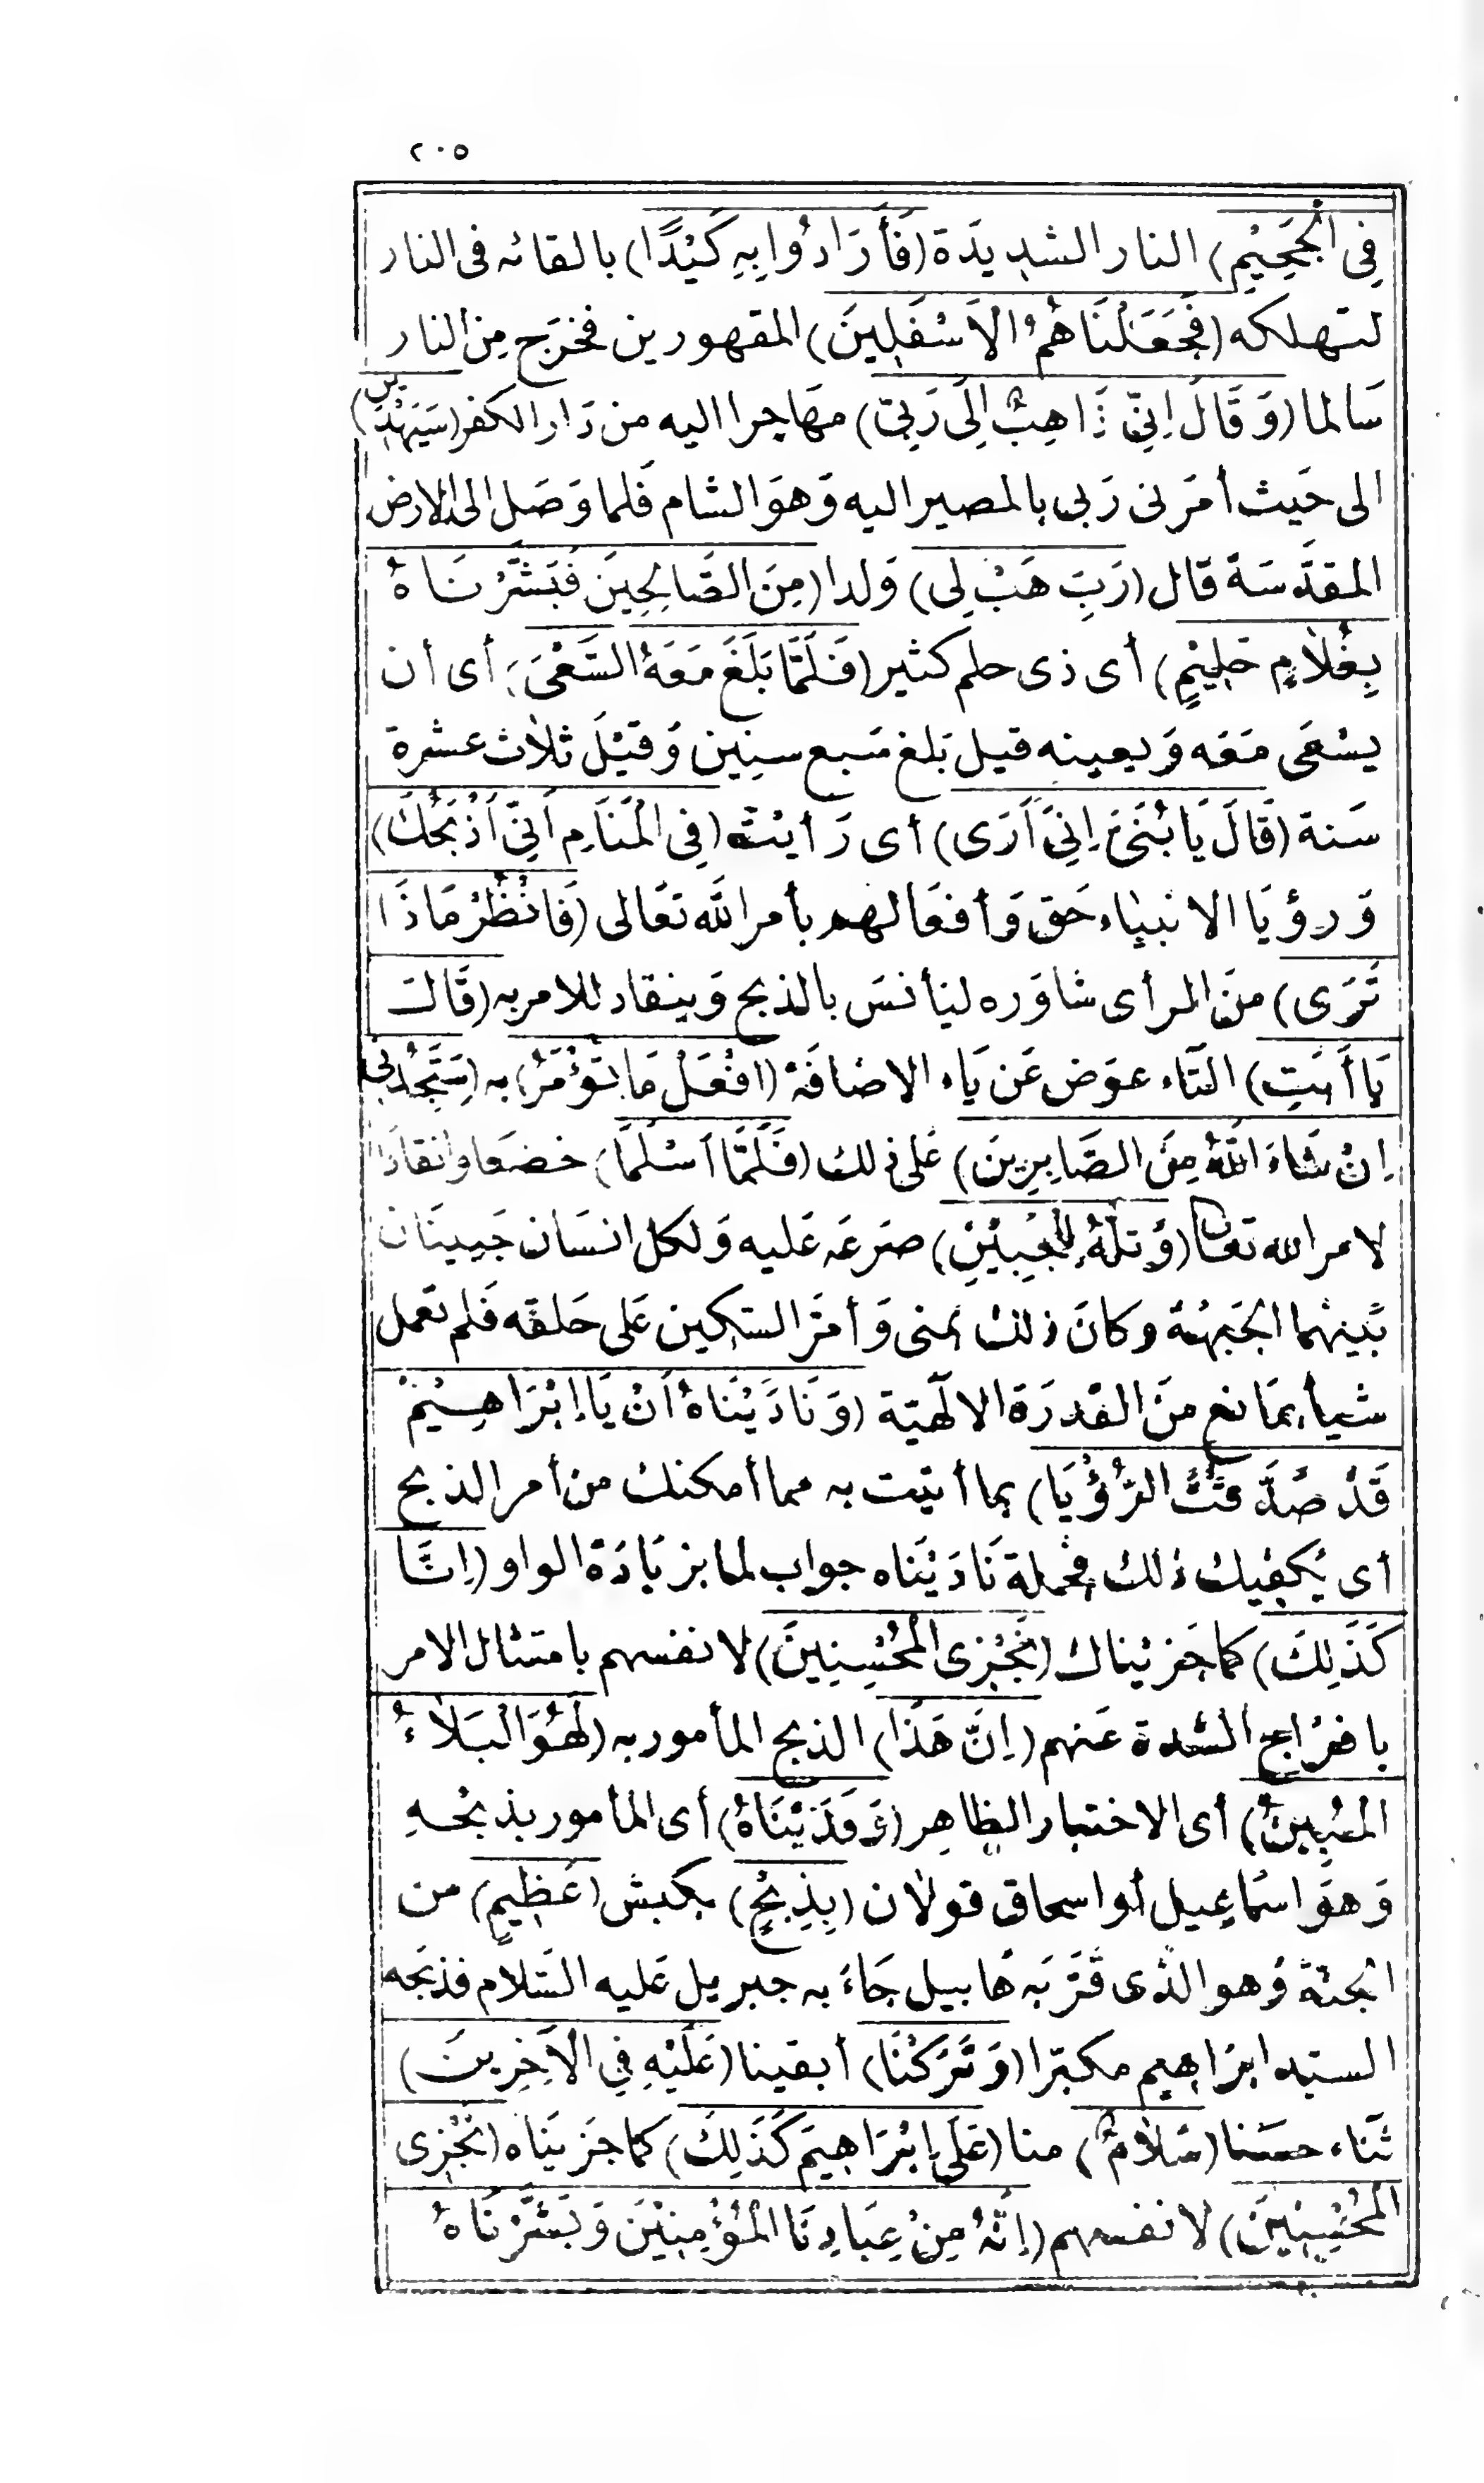 ٢٠٥
فِى الْجَحِيْمِ) النار الشديدَة (فَأَرَادُوا بِهِ كَيْدًا) بالقائه فى النار
لتهلكه (فَجَعَلْنَاهُمُ الْاَسْفَلِينَ) المقهورين فخرَج مِن النار
سَالما (وَقَالَ اِنِّى ذَاهِبٌ اِلَى رَبِّى) مهَاجرا اليه من دَار الكفر (سَيَهْدِينِ)
الى حَيث أمَرنى رَبى بالمصير اليه وَهوَ الشام فَلما وَصَل الى الارض
المقدَّسَة قال (رَبِّ هَبْ لِى) وَلدا (مِنَ الصَّالِحِينَ فَبَشَّرْنَاهُ
بِغُلاَمٍ حَلِيْمٍ) أى ذى حلم كثير (فَلَمَّا بَلَغَ مَعَهُ السَّعْىَ) أى أن
يسْعَى مَعَه وَيعينه قيل بَلغ سَبع سنِين وَقيْلَ ثلاَث عشرة
سَنة (قَالَ يَا بُنَىَّ اِنِّى اَرَى) أى رَأيتُ (فِى الْمَنَامِ اَنِّى اَذْبَحُكَ)
وَرؤيَا الانبيَاء حَق وَأفعَالهم بأمر الله تعَالى (فَانْظُرْ مَاذَا
تَرَى) منَ الرأى شاوَره ليأنسَ بالذبح وَينقاد للامر به (قَالَ
يَا أَبَتِ) التاء عوَض عَن يَاء الاضافَة (افْعَلْ مَا تُؤْمَرُ) به (سَتَجِدُنِى
اِنْ شَاءَ اللهُ مِنَ الصَّابِرِينَ) عَلى ذلك (فَلَمَّا اَسْلَمَا) خضعَا وانقادَا
لامر الله تعالى (وَتَلَّهُ لِلْجَبِيْنِ) صَرعَه عَليه وَلكل انسَان جَبينَان
بَينهما الجَبهَة وكانَ ذلك بمنى وَأمَرَّ السكين عَلى حَلقه فَلم تعمل
شيأ بمَانع منَ القدرَة الالهيَّة (وَنَادَيْنَاهُ اَنْ يَا اِبْرَاهِيْمُ
قَدْ صَدَّقْتَ الرُّؤْيَا) بما أتيت به مما أمكنك من أمر الذبح
أى يَكفيك ذلك فجملة نَادَيْنَاه جواب لما بزيَادَة الواو (اِنَّا
كَذَلِكَ) كما جَزيْناك (نَجْزِى الْمُحْسِنِينَ) لانفسهم بامتثال الامر
بافرَاج الشدة عَنهم (اِنَّ هَذَا) الذبح المأمور به (لَهُوَ الْبَلاَءُ
الْمُبِينُ) أى الاختبار الظاهِر (وَفَدَيْنَاهُ) أى المأمور بذبْحهِ
وَهوَ اسمَاعِيل أو اسحاق قولاَن (بِذِبْحٍ) بكبش (عَظِيمٍ) من
الجنَّة وَهو الذى قرَّبَه هَابيل جَاءَ به جبريل عَليه السَّلام فذبَحه
السيد ابرَاهيم مكبّرا (وَتَرَكْنَا) أبقينا (عَلَيْهِ فِي الْاَخِرِينَ)
ثَناء حسَنا (سَلاَمٌ) منا (عَلَى اِبْرَاهِيمَ كَذَلِكَ) كما جَزيْنَاه (نَجْزِى
الْمُحْسِنِيْنَ) لانفسهم (اِنَّهُ مِنْ عِبَادِنَا الْمُؤْمِنِيْنَ وَبَشَّرْنَاهُ